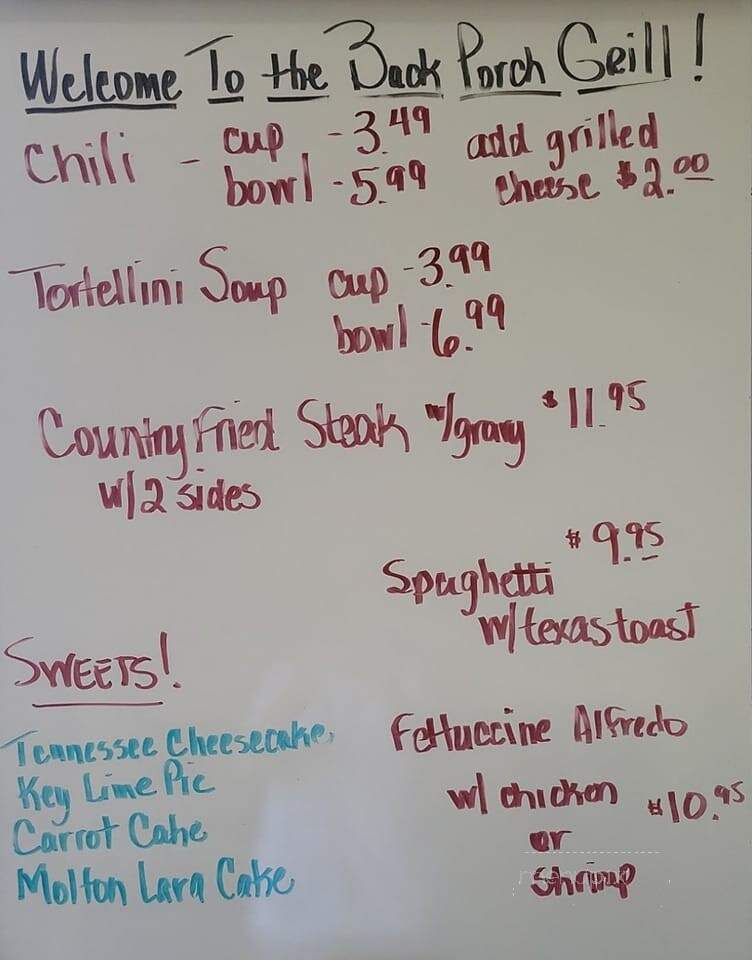 Welcome To the Back Porch Grill!
Chili - cup - 3.49 add grilled
bowl - 5.99 cheese $2.00
Tortellini Soup cup - 3.99
bowl - 6.99
Country Fried Steak w/gravy $11.95
w/2 sides
$9.95
Spaghetti
w/texas toast
SWEETS!
Tennessee Cheesecake
Key Lime Pie
Carrot Cake
Molton Lava Cake
Fettuccine Alfredo
w/ chicken $10.95
or
shrimp